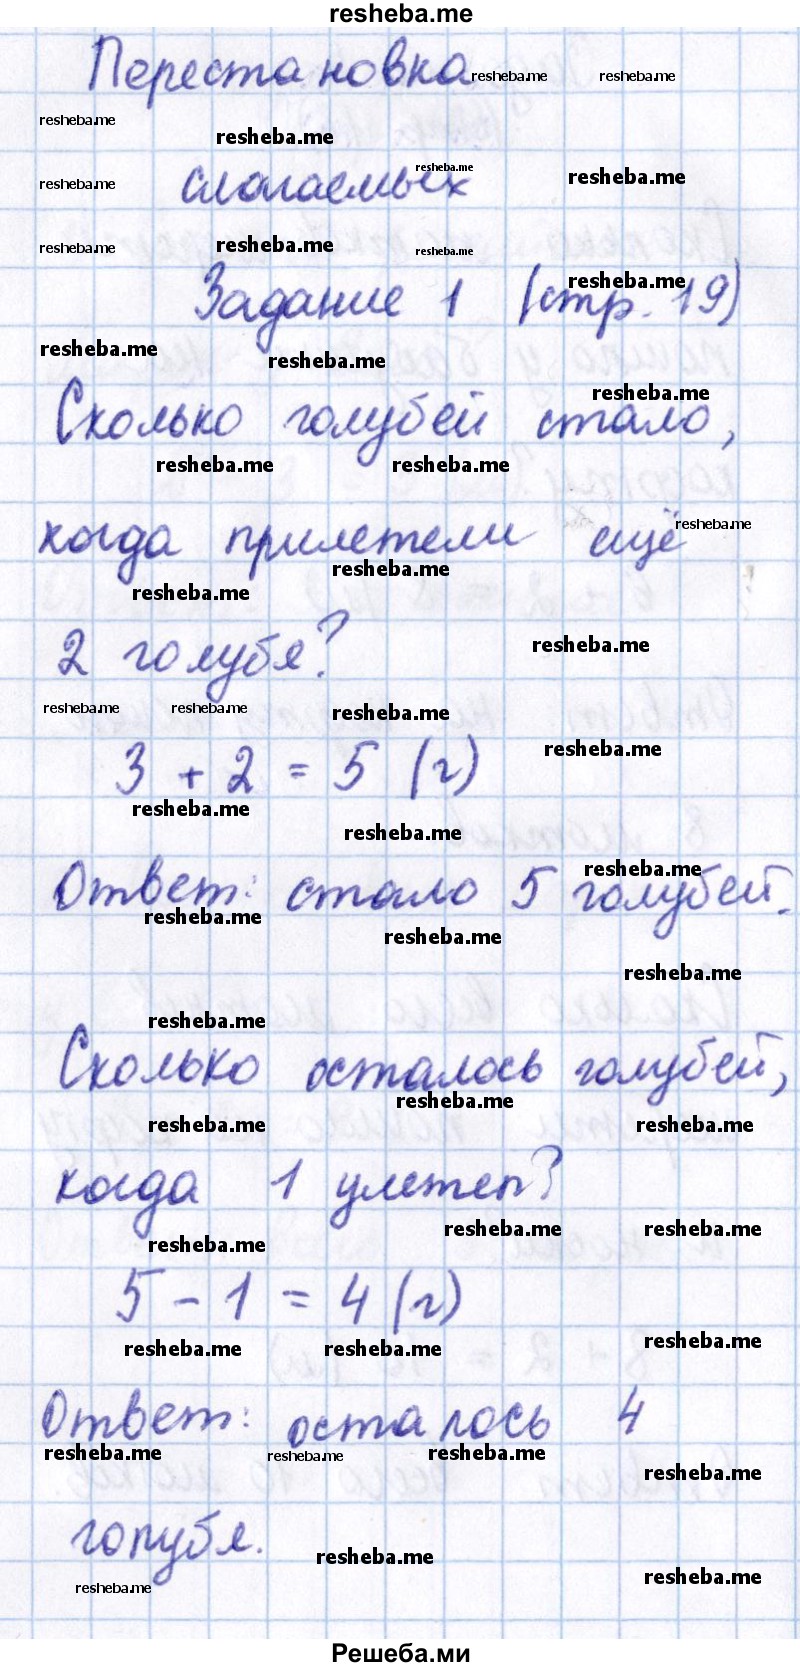 resheba.me
Перестановка
слагаемых
Задание 1 (стр. 19)
Сколько голубей стало,
когда прилетели ещё
2 голубя?
3 + 2 = 5 (г)
Ответ: стало 5 голубей.
Сколько осталось голубей,
когда 1 улетел?
5 - 1 = 4 (г)
Ответ: осталось 4
голубя.
Решеба.ми